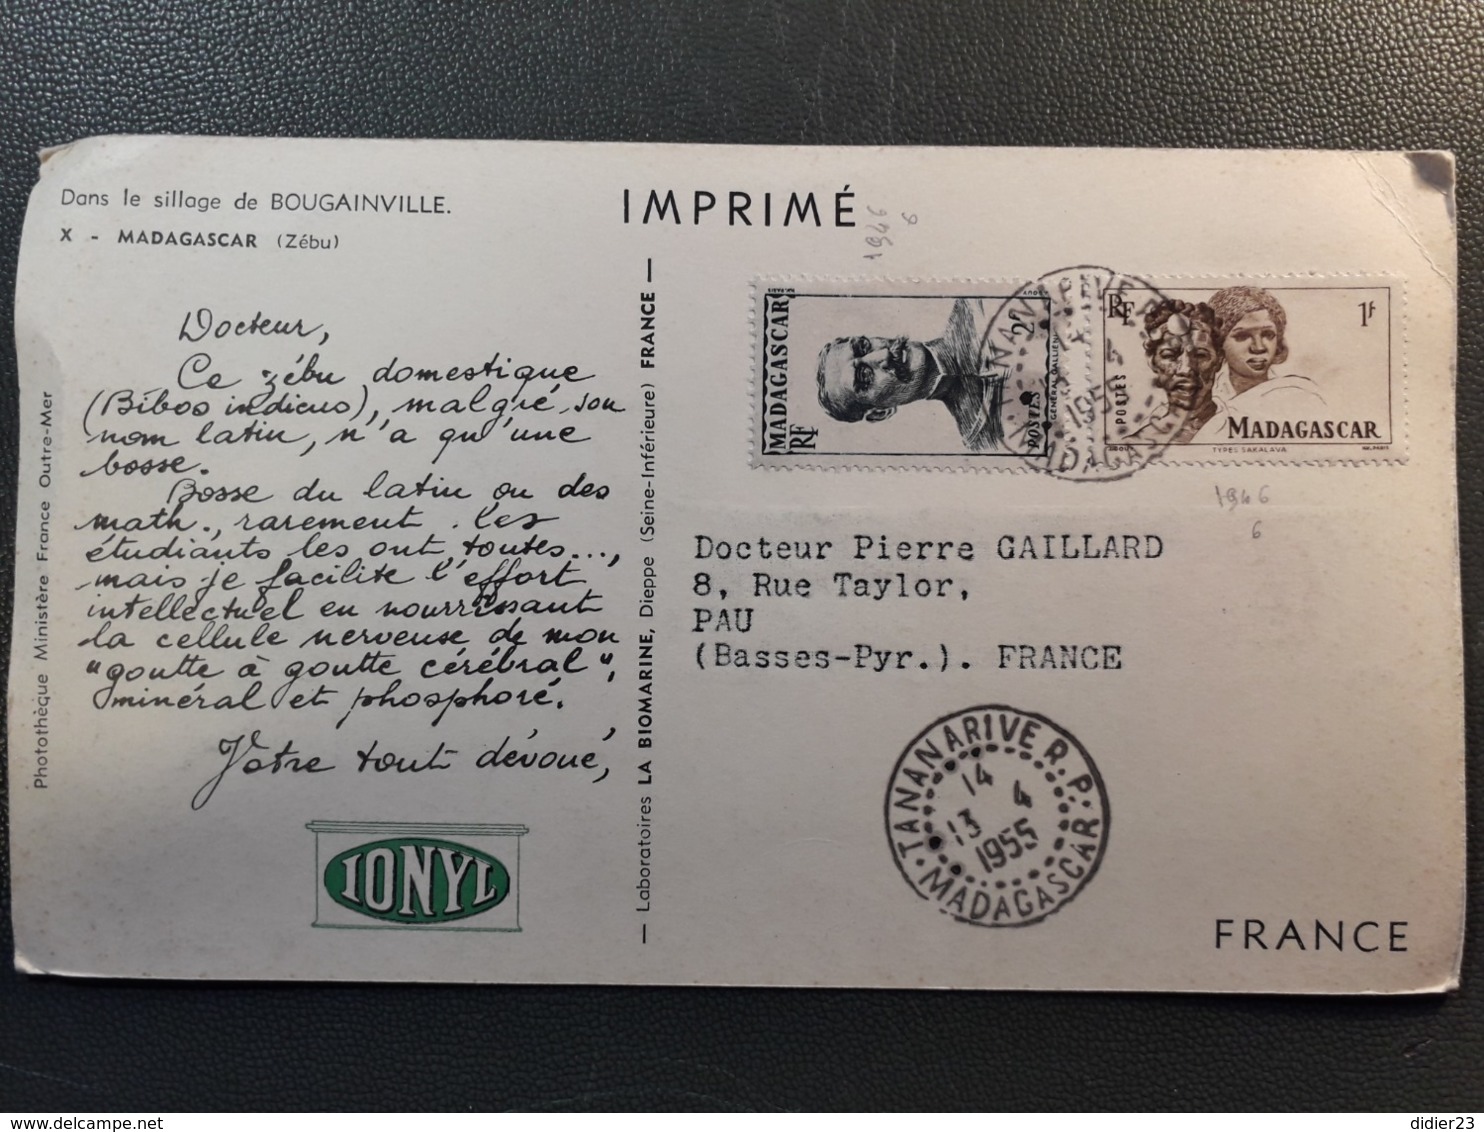 Dans le sillage de BOUGAINVILLE.
X - MADAGASCAR (Zébu)
IMPRIMÉ
1946
6
Docteur,
Ce zébu domestique
(Bibos indicus), malgré son
nom latin, n'a qu'une
bosse.
Bosse du latin ou des
math., rarement. Les
étudiants les ont toutes...,
mais je facilite l'effort
intellectuel en nourrissant
la cellule nerveuse de mon
"goutte à goutte cérébral",
minéral et phosphoré.
Votre tout dévoué,
IONYL
Photothèque Ministère France Outre-Mer
— Laboratoires LA BIOMARINE, Dieppe (Seine-Inférieure) FRANCE —
MADAGASCAR
RF
2f
POSTES
GÉNÉRAL GALLIENI
RF
1f
POSTES
MADAGASCAR
TYPES SAKALAVA
1946
6
Docteur Pierre GAILLARD
8, Rue Taylor,
PAU
(Basses-Pyr.). FRANCE
TANANARIVE R.P.
14
13 4
1955
MADAGASCAR
FRANCE
delcampe.net
didier23